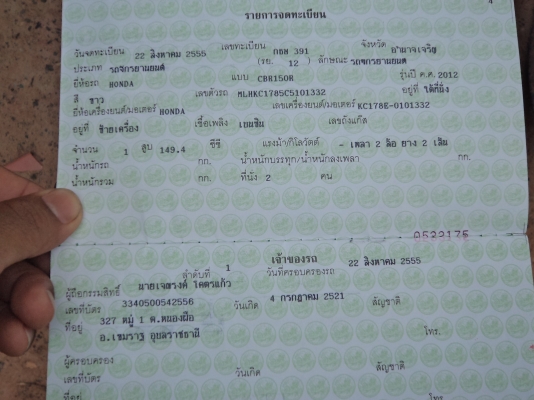 รายการจดทะเบียน
วันจดทะเบียน 22 สิงหาคม 2555 เลขทะเบียน กธพ 391 จังหวัด อำนาจเจริญ
ประเภท รถจักรยานยนต์ (รย. 12 ) ลักษณะ รถจักรยานยนต์
ยี่ห้อรถ HONDA แบบ CBR150R รุ่นปี ค.ศ. 2012
สี ขาว เลขตัวรถ MLHKC1785C5101332 อยู่ที่ ใต้ที่นั่ง
ยี่ห้อเครื่องยนต์/มอเตอร์ HONDA เลขเครื่องยนต์/มอเตอร์ KC178E-0101332
อยู่ที่ ซ้ายเครื่อง เชื้อเพลิง เบนซิน เลขถังแก๊ส
จำนวน 1 สูบ 149.4 ซีซี แรงม้า/กิโลวัตต์ - เพลา 2 ล้อ ยาง 2 เส้น
น้ำหนักรถ กก. น้ำหนักบรรทุก/น้ำหนักลงเพลา กก.
น้ำหนักรวม กก. ที่นั่ง 2 คน
0532175
เจ้าของรถ
ลำดับที่ 1 วันที่ครอบครองรถ 22 สิงหาคม 2555
ผู้ถือกรรมสิทธิ์ นายเจตรงค์ โคตรแก้ว
เลขที่บัตร 3340500542556 วันเกิด 4 กรกฎาคม 2521 สัญชาติ
ที่อยู่ 327 หมู่ 1 ต.หนองผือ
อ.เขมราฐ อุบลราชธานี โทร.
ผู้ครอบครอง
เลขที่บัตร วันเกิด สัญชาติ
ที่อยู่ โทร.